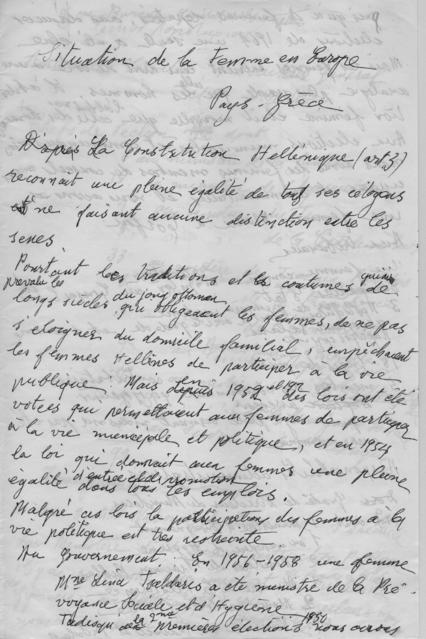 Situation de la Femme en Europe
Pays - Grèce
D'après La Constitution Hellénique (art 3)
reconnait une pleine égalité de tous ses citoyens
ne faisant aucune distinction entre les
sexes
Pourtant les traditions et les coutumes
prévalu les
longs siècles du joug ottoman de
qui obligeaient les femmes, de ne pas
s'éloigner du domicile familial, empêchaient
les femmes Hellènes de participer à la vie
publique. Mais en 1952 des lois ont été
votées qui permettaient aux femmes de participer
à la vie municipale et politique, et en 1954
la loi qui donnait aux femmes une pleine
égalité d'entrée et de promotion
dans tous les emplois.
Malgré ces lois la participation des femmes à la
vie politique est très restreinte
Au Gouvernement : En 1956-1958 une femme
Mme Lina Tsaldaris a été ministre de la Pré-
voyance Sociale et d'Hygiène
Tandis premières élections 1950 nous avons